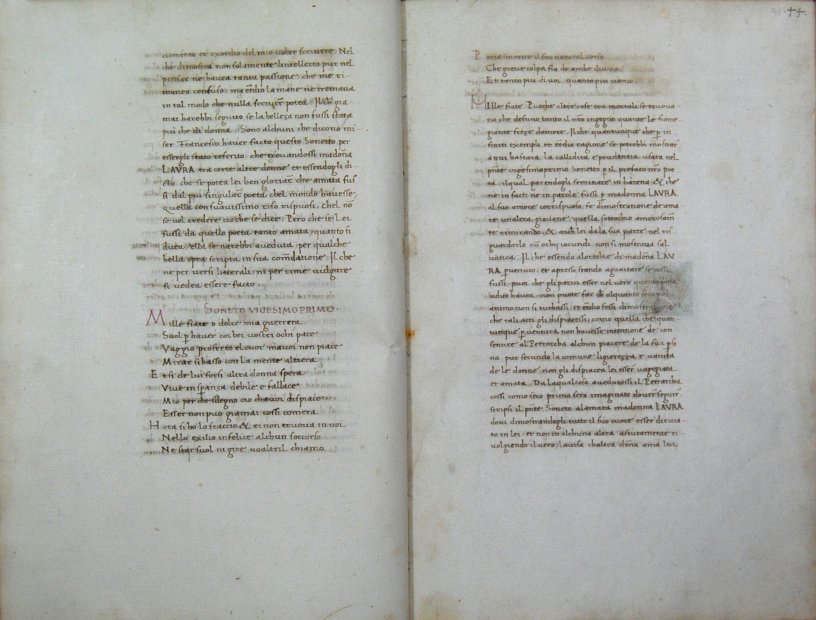 cimento et exordio del mio voler scrivere. Nel
che dimostra non solamente lintellecto pur nel
pensar ne havea tanta passione che me ri
manea confuso: ma et dio la mane ne tremava
in tal modo che nulla scriver potea. gia
mai harebbi seguito se la belleza non fussi stata
piu che di donna. Sono alchuni che dicono mi
ser Francesco haver facto questo Sonetto per
essergli stato referito che trovandossi madōna
LAVRA tra certe altre donne et essendogli di
cto che se potea lei ben gloriar che amata fus
si dal piu singular poeta chel mondo havesse,
quella con suavissimo riso rispuosi, Chel nō
se vol credere cioche se dice: Pero che se Lei
fussi da quello poeta tanto amata quanto si
dicea, ella se narebbi aveduta per qualche
bella opra scripta in sua comēdatione. Il che
ne per versi litterali, ne per rime vulgare
si vedea essere facto.
SONETO VIGESIMOPRIMO.
Mille fiate o dolce mia guerrera
Suol p haver con bei vostri ochi pace
Vaggio proferto el cuor mavoi non piace
Mirar si basso con la mente altiera
Et si de lui forsi altra donna spera
Vive in spanza debile e fallace
Mio per che silegno cio chavoi dispiace
Esser non puo giamai cossi comera
Hora si ho lo scaccio & ei non truova in voi
Nello exilio infelice alchun soccorso
Ne star suol ni gire voaltril chiamo
44
Poria smarire il suo natural corso
Che grave colpa fia de ambe dui noi
Et tanto piu di voi quanto piu vamo.
Mille fiate. Puoche altre cose tra mortali se truova
no che desuino tanto il nr̄o ingegno quanto Le fiame
giante forze damore. Il che quantunque che p in
finiti exempli et et dio ragione se potebbi mostrar
a nui bastara la calliditta e prudentia usata nel
pn̄te vigesimoprimo Sonetto p il prefato nr̄o poe
ta, il qual parendogli seminare in harena, & che
ne in facti ne in parole fussi p madonna LAVRA
al suo amore corrispuoso, fece dimostratione de ama
re unaltra giovene, quella sottocho amorosam̄
te rimirando, & anche lei dalla sua parte nel ris
guardarlo cū ochi iocundi non si mostrava sal
vatica. Il che essendo alorechie di madōna LAV
RA pervenuto et apcessi stando aguaitare se cossi
fussi, puoi che gli parvi esser nel vero quanto prima
udito havea, non puote far di alquanto seco p
animo non si turbassi, et et dio fessi dimostratione
che tali atti gli dispiacessi, como quella che quan
tunque pventura non havesse intentione de con
sentire al Petrarcha alchun piacere de la sua pso
na pur secundo la comune ligiereza et vanita
de le donne non gli dispiacea lei esser vagegiata
et amata. Da laqual cosa avedutossi il Petrarcha
cossi como seco prima sera imaginato dover seguir
scripsi il pn̄te Soneto alamata madonna LAVRA
dovi dimostrandogli tutto il suo cuore esser diriva
to in lei et non en alchuna altra astutamente ri
volgiendo il vero, laversa chaltra dōna ama lui.